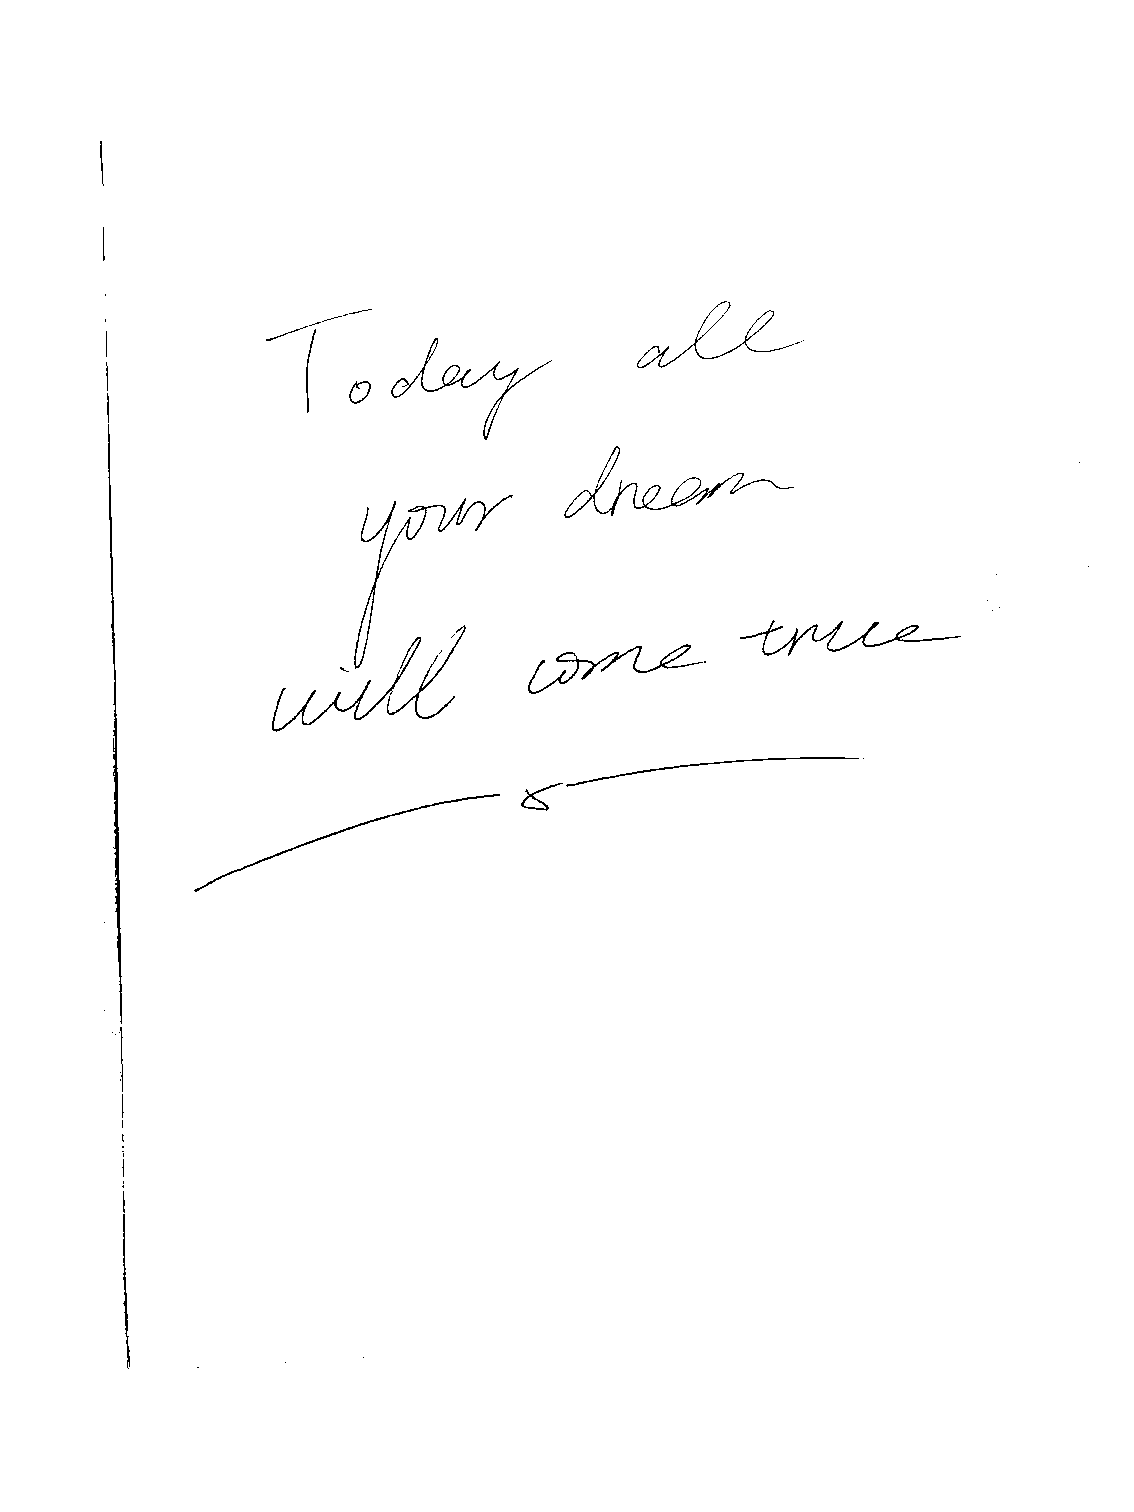 Today all
your dream
will come true